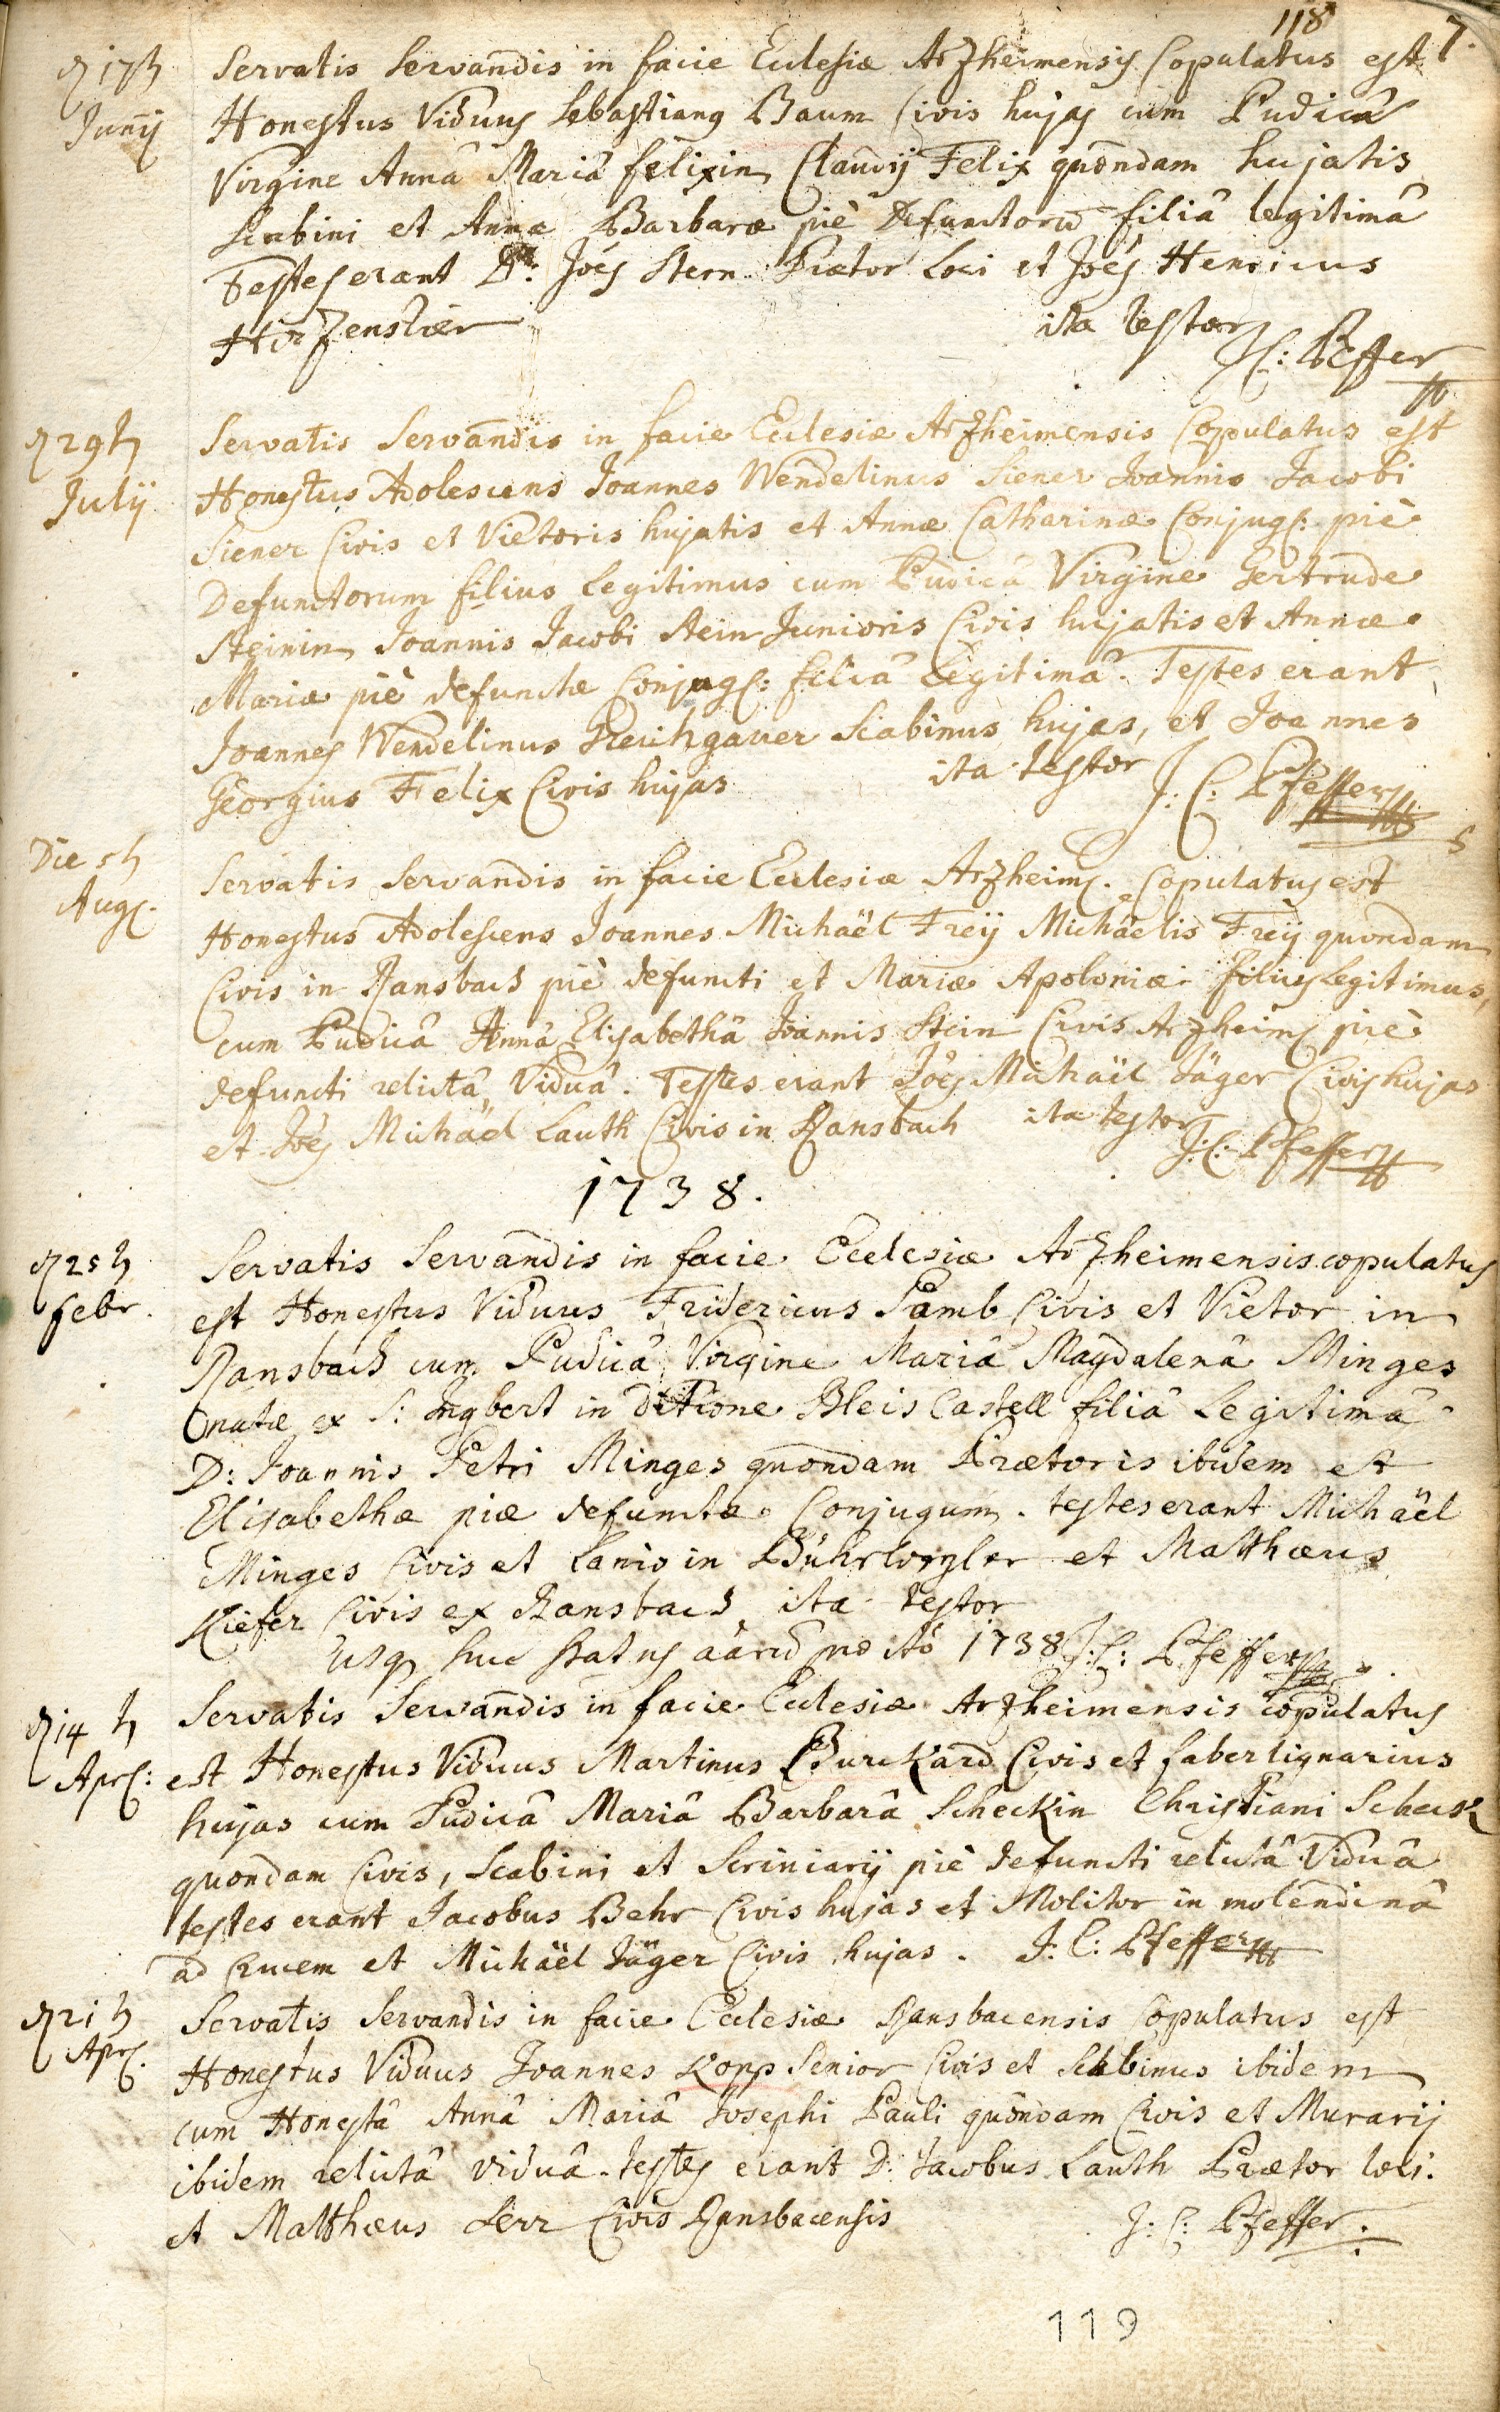 118 7.
d 17ħ Servatis Servandis in facie Ecclesiæ Arzheimensis Copulatus est
Junij Honestus Viduus Sebastianus Baum Civis hujas cum Pudicâ
Virgine Annâ Mariâ felixin Claudij Felix quondam hujatis
Scabini et Annæ Barbaræ piè Defunctorũ filiâ legitimâ
Testes erant D: Joês Stern Prætor Loci et Joês Henricus
Hirzenstier ita testor
J C: Pfeffer
d 29ħ Servatis Servandis in facie Ecclesiæ Arzheimensis Copulatus est
Julij Honestus Adolescens Joannes Wendelinus Siener Joannis Jacobi
Siener Civis et Vietoris hujatis et Annæ Catharinæ Conjug: piè
Defunctorum filius Legitimus cum Pudicâ Virgine Gertrude
Steinin Joannis Jacobi Stein Junioris Civis hujatis et Annæ
Mariæ piè defunctæ Conjug: filiâ Legitimâ. Testes erant
Joannes Wendelinus Kreichgauer Scabinus hujas, et Joannes
Georgius Felix Civis hujas ita testor J: C: Pfeffer
Die 5ħ Servatis Servandis in facie Ecclesiæ Arzheims. Copulatus est
Aug. Honestus Adolescens Joannes Michaël Freÿ Michäelis Freÿ quondam
Civis in Ransbach piè defuncti et Mariæ Apoloniæ filius Legitimus,
cum Pudicâ Annâ Elisabethâ Joannis Stein Civis Arzheims piè
defuncti relictâ Viduâ. Testes erant Joês Michaël Jäger Civis hujas
et Joês Michäel Lauth Civis in Ransbach ita testor
J: C: Pfeffer
1738.
d 25ħ Servatis Servandis in facie Ecclesiæ Arzheimensis copulatus
febr. est Honestus Viduus Fridericus Damb Civis et Vietor in
Ransbach cum Pudicâ Virgine Mariâ Magdalenâ Minges
natæ ex S: Ingbert in ditione Bleis Castell filiâ Legitimâ
D: Joannis Petri Minges quondam Prætoris ibidem et
Elisabethæ piæ defunctæ Conjugum. testes erant Michaël
Minges Civis et Lanio in Bührweyler et Matthæus
Kiefer Civis ex Ransbach ita testor
usq huc status 1738 J: C: Pfeffer
d 14 ħ Servatis Servandis in facie Ecclesiæ Arzheimensis copulatus
Apr: est Honestus Viduus Martinus Burckard Civis et faber lignarius
hujas cum Pudicâ Mariâ Barbarâ Scheckin Christiani Scheck
quondam Civis, Scabini et Scriniarij piè defuncti relictâ Viduâ
testes erant Jacobus Behr Civis hujas et Molitor in molendinâ
ad Crucem et Michaël Jäger Civis hujas. J: C: Pfeffer
d 21 ħ Servatis Servandis in facie Ecclesiæ Ransbacensis Copulatus est
Apr. Honestus Viduus Joannes Kopp Senior Civis et Scabinus ibidem
cum Honestâ Annâ Mariâ Josephi Pauli quôndam Civis et Murarij
ibidem relictâ viduâ. testes erant D: Jacobus Lauth Prætor loci.
et Matthæus Serr Civis Ransbacensis J: C: Pfeffer.
119